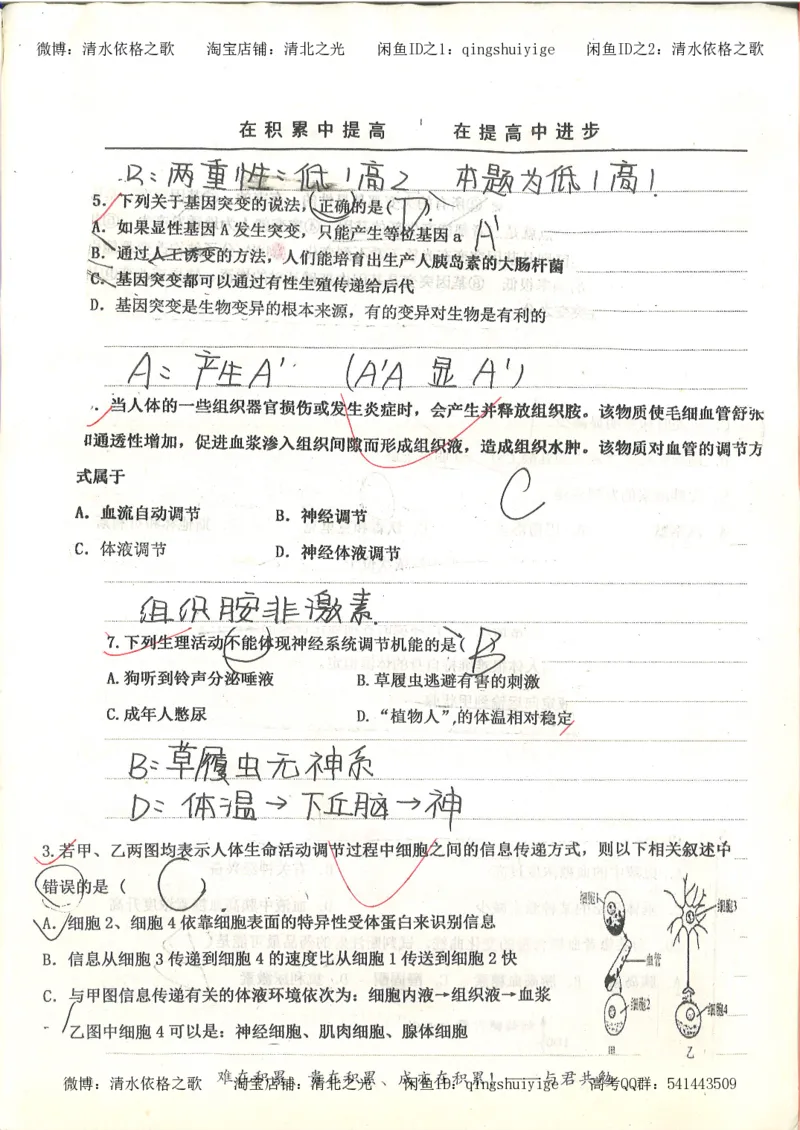 微博：清水依格之歌 淘宝店铺：清北之光 闲鱼ID之1：qingshuiyige 闲鱼ID之2：清水依格之歌
在积累中提高 在提高中进步
B：两重性：低1高2 本题为低1高1.
5．下列关于基因突变的说法，正确的是( D )
A．如果显性基因 A 发生突变，只能产生等位基因 a A'
B．通过人工诱变的方法，人们能培育出生产人胰岛素的大肠杆菌
C．基因突变都可以通过有性生殖传递给后代
D．基因突变是生物变异的根本来源，有的变异对生物是有利的
A：产生A' (A'A 显 A')
．当人体的一些组织器官损伤或发生炎症时，会产生并释放组织胺。该物质使毛细血管舒张
和通透性增加，促进血浆渗入组织间隙而形成组织液，造成组织水肿。该物质对血管的调节方
式属于 C
A．血流自动调节 B．神经调节
C．体液调节 D．神经体液调节
组织胺非激素.
7.下列生理活动不能体现神经系统调节机能的是( B
A.狗听到铃声分泌唾液 B.草履虫逃避有害的刺激
C.成年人憋尿 D.“植物人”,的体温相对稳定
B：草履虫无神系
D：体温→下丘脑→神
3.若甲、乙两图均表示人体生命活动调节过程中细胞之间的信息传递方式，则以下相关叙述中
错误的是（ C ）
A．细胞 2、细胞 4 依靠细胞表面的特异性受体蛋白来识别信息
B．信息从细胞 3 传递到细胞 4 的速度比从细胞 1 传送到细胞 2 快
C．与甲图信息传递有关的体液环境依次为：细胞内液→组织液→血浆
乙图中细胞 4 可以是：神经细胞、肌肉细胞、腺体细胞
细胞1 细胞3
血管
细胞2 细胞4
甲 乙
难在积累、贵在积累、成亦在积累！——与君共勉
微博：清水依格之歌 淘宝店铺：清北之光 闲鱼ID：qingshuiyige 高考QQ群：541443509